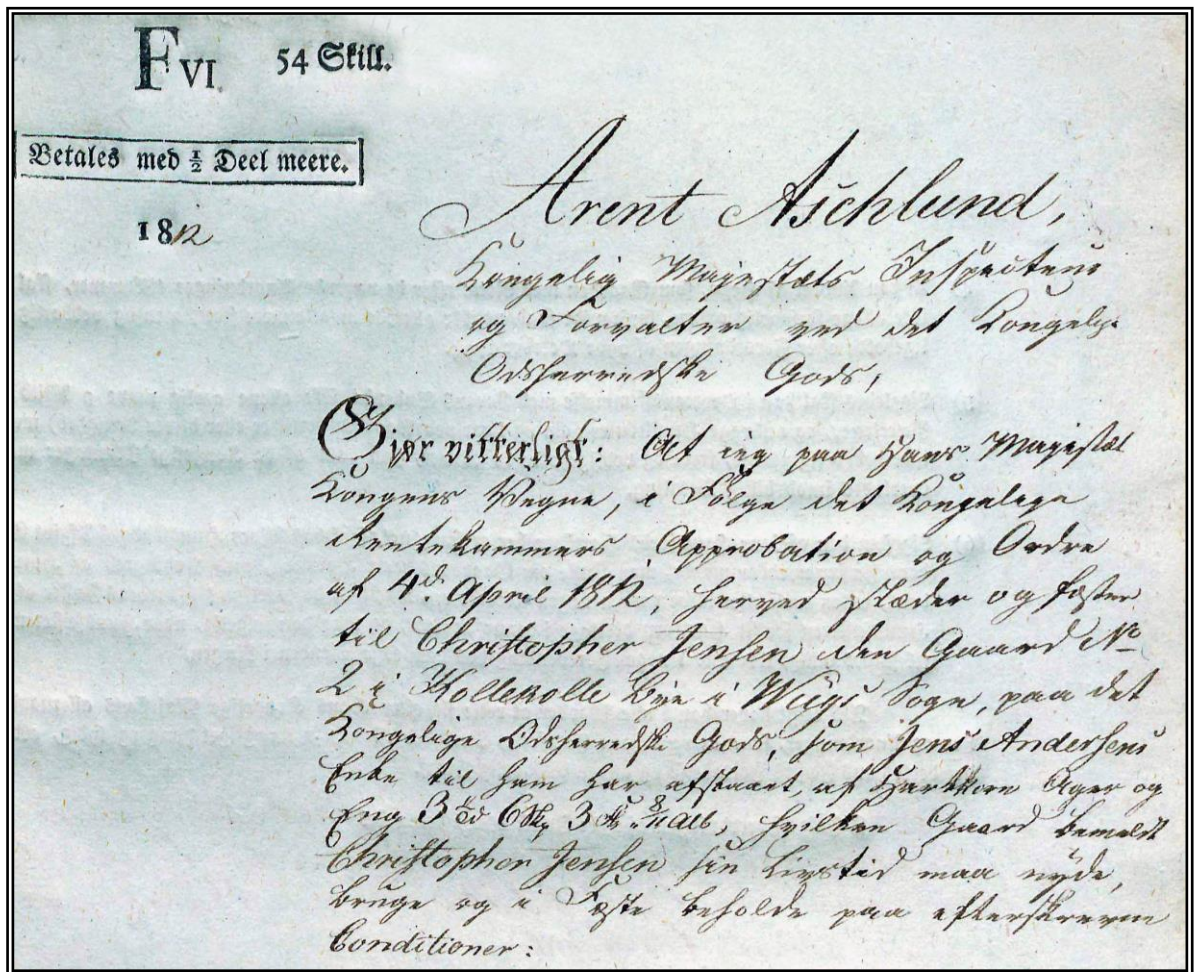 F VI. 54 Skill.
Betales med ½ Deel meere.
1812
Arent Aschlund,
Kongelig Majestæts Inspecteur
og Forvalter ved det Kongelige
Odsherredske Gods,
Gjør vitterligt: At jeg paa Hans Majestæt
Kongens Vegne, i Følge det Kongelige
Rentekammers Approbation og Ordre
af 4d. April 1812, herved stæder og fæster
til Christopher Jensen den Gaard No
2 i Kollekolle Bye i Wiigs Sogn, paa det
Kongelige Odsherredske Gods, som Jens Andersens
Enke til ham har afstaaet, af Hartkorn Ager og
Eng 3 Td 6 Skp 3 Alb, hvilken Gaard bemeldt
Christopher Jensen sin Livstid maa nyde,
bruge og i Fæste beholde paa efterskrevne
Conditioner: